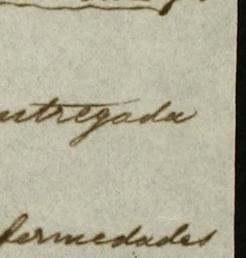 ntregada
fermedades